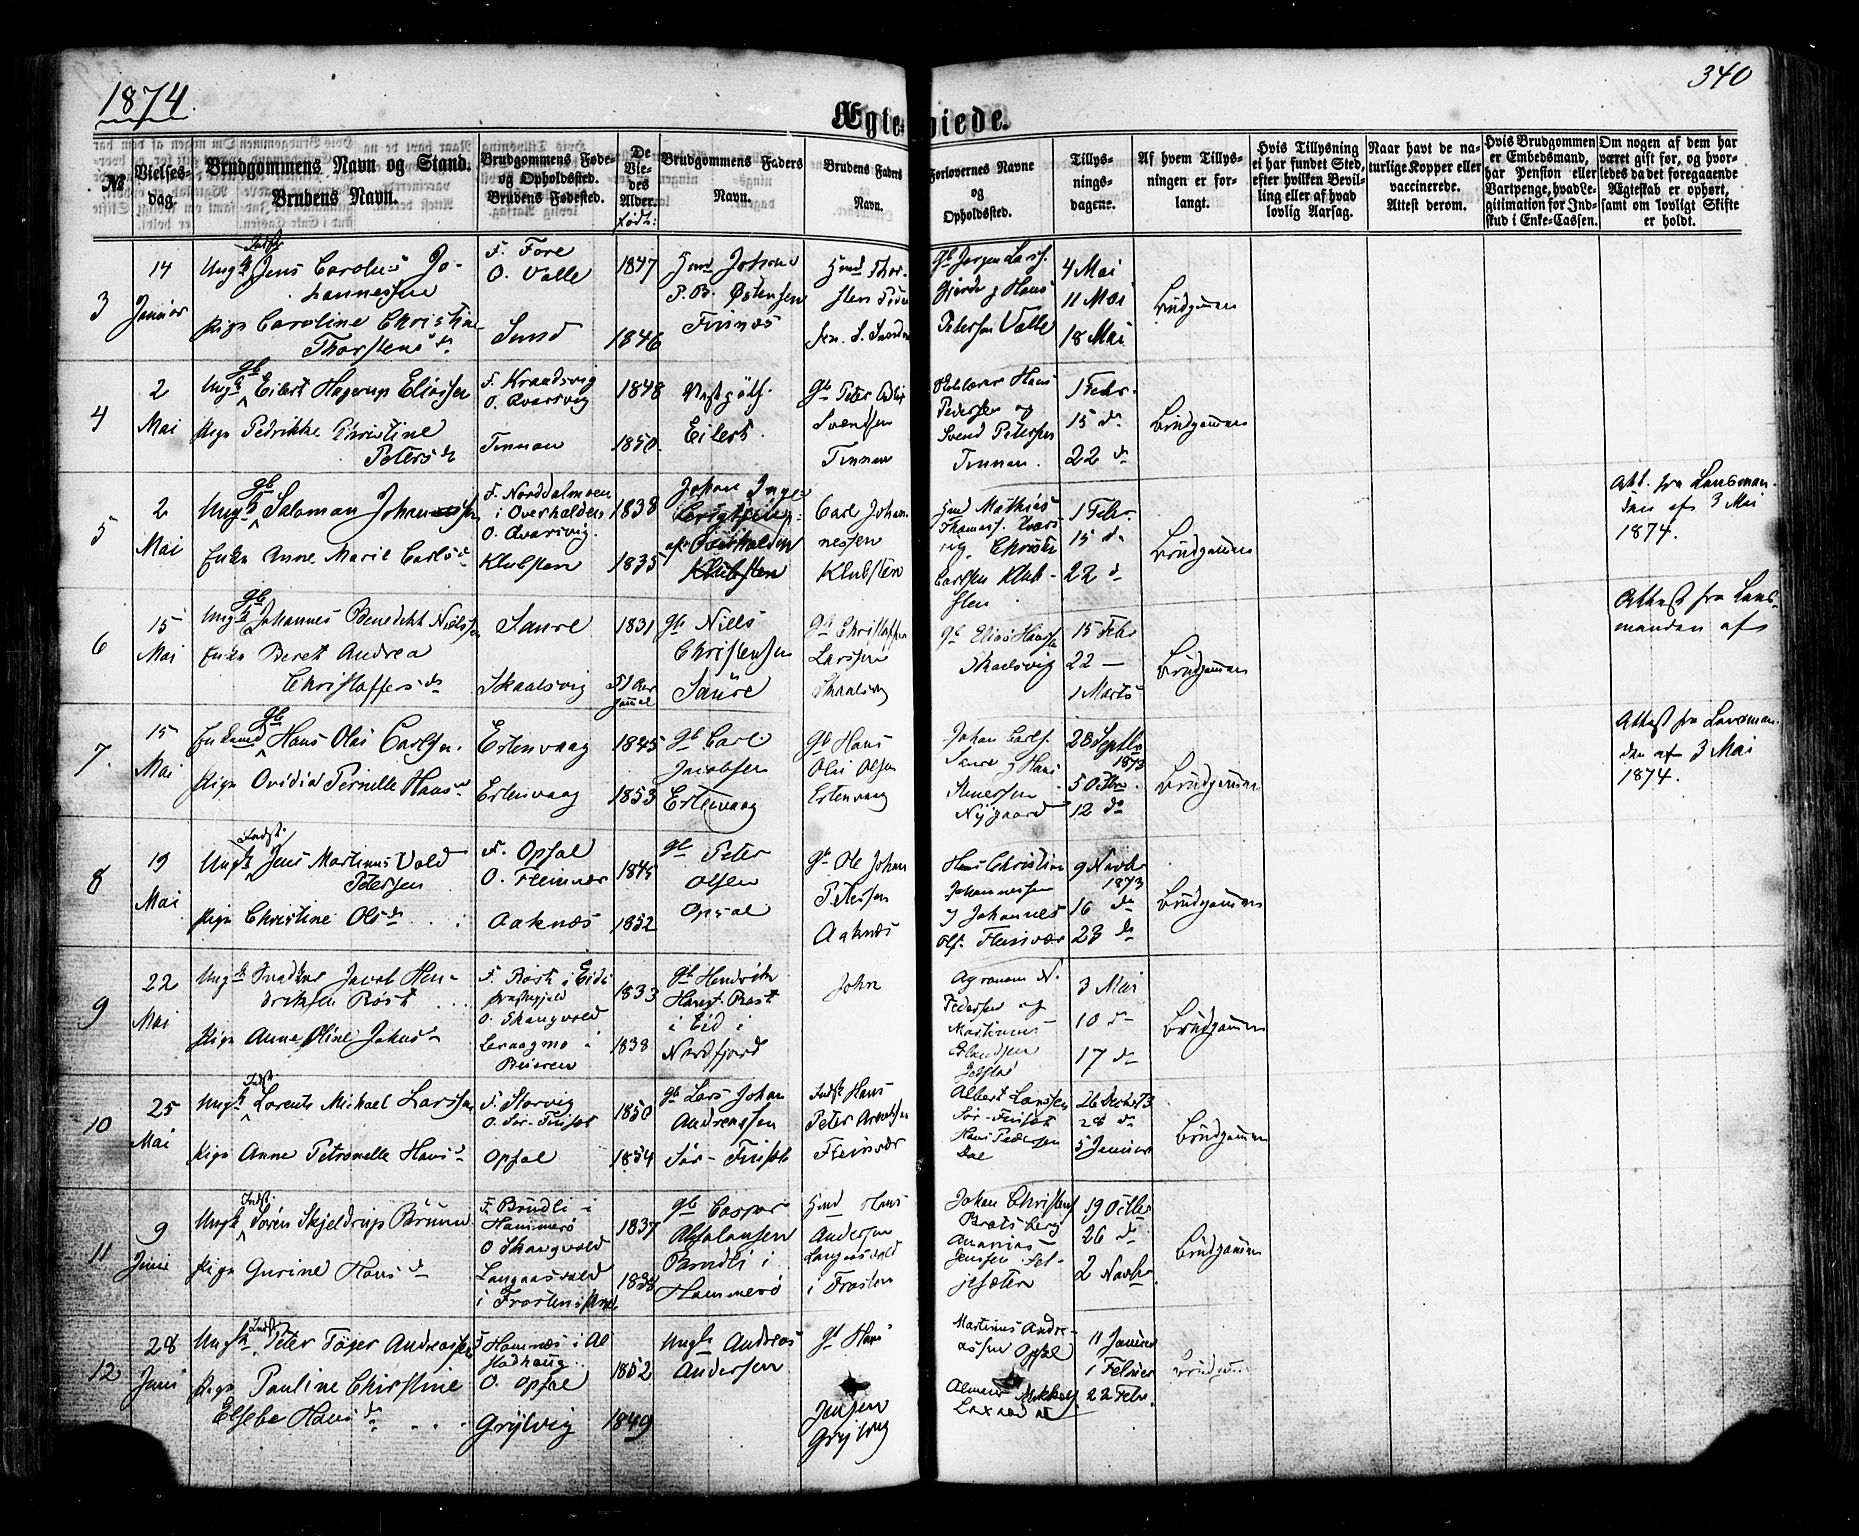 1874.
340
Ægteviede.
No
Vielses-
dag.
Brudgommens Navn og Stand.
Brudens Navn.
Brudgommens Føde-
og Opholdssted.
Brudens Fødested.
De
Vie-
des
Alder.
født:
Brudgommens Faders
Navn.
Brudens Faders
Navn.
Forlovernes Navne
og
Opholdssted.
Tillys-
nings-
dagene.
Af hvem Tillys-
ningen er for-
langt.
Hvis Tillysning
ei har fundet Sted,
efter hvilken Bevil-
ling eller af hvad
lovlig Aarsag.
Naar havt de na-
turlige Kopper eller
vaccinerede.
Attest derom.
Hvis Brudgommen
er Embedsmand,
har Pension eller
Vartpenge, hvad Le-
gitimation for Ind-
skud i Enke-Cassen.
Om nogen af dem har
været gift før, og hvor-
ledes da det foregaaende
Ægteskab er ophørt,
samt om lovligt Skifte
er holdt.
3
14
Januar
Ungk Indst Jens Carolus Jo-
hannessen
Pige Caroline Christine
Thorstensdr
F. Fore
O. Valle
Sund
1847
1846
Hmd Johan
P. B. Østensen
Finnes
Hmd Thor-
sten Peder
Gb Jørgen Lars.
Gjerde g Hans
Petersen Valle
4 Mai
11 Mai
18 Mai
Brudgommen
4
2
Mai
Ungk gb Eilert Hagerup Eliassen
Pige Pedrikke Christine
Petersdr
O. Kvarsvig
Tennan
1848
1850.
Eilert.
gb Peter
Svendsen
Tennan
Hans
Pedersen og
Svend Petersen
Tennan.
1 Febr.
15 do
22 do
Brudgommen
5
2
Mai
Ungk gb Salamon Johannessen
Enke Anne Marie Carlsdr
F. Norddalmoen
i Overhalden
O. Kvarsvig.
Klubsten
1838
1835
Johan Inge
af Overhalden
Klubsten
Carl Johan-
nessen
Klubsten
Gmd Mathias
Thomas. Kvars
vig. Christen
Carlsen Klub-
sten
1 Febr.
15 do
22 do
Brudgommen
Att. fra Lensman-
den af 3 Mai
1874.
6
15
Mai
Ungk gb Johannes Benedikt Nielsen
Enke Beret Andrea
Christoffersdr
Saure
Skaalsvig
1831
gb Niels
Christensen
Saure
gb Christoffer
Larssen
Skaalsvig
gb Elias Hanss
Skaalsvig
15 Febr
22 —
1 Marts
Brudgommen
Attest fra Lens-
manden af
7.
15
Mai
Enkemd gb Hans Olai Carlsen.
Pige Ovidia Pernille Hansdr
Ertenvaag
Ertenvaag
1845
1853
gb Carl
Jacobsen
Ertenvaag
gb Hans
Olai Olsen
Ertenvaag
Johan Carls.
Saure g Hans
Nygaard
28 Septbr
1873
5 Octbr.
12 do
Brudgommen
Attest fra Lensman-
den af 3 Mai
1874.
8
19
Mai
Ungk Indst. Jens Martinus Vold
Petersen
Pige Christine Olsdr
F. Opsal
O. Fleinvær
Aaknæs
1845
1852
gb Peter
Olsen
Opsal
gb Ole Johan
Petersen
Aaknæs
Hans Christian
Johannessen
g Johannes
Ols. Fleinvær
9 Novbr
1873
16 do
23 do
Brudgommen
9
22
Mai
Ungk Snedker Jacob Hen-
driksen Røst
Pige Anne Oline Johnsdr
F. Røst i Eids
Præstegjeld
O. Skaugvold
Beieren
1833
1838
gb Hendrik
Hans. Røst
i Eid i
Nordfjord
John
Agronom N.
Pedersen og
Martinus
Erlandsen
3 Mai
10 do
17 do
Brudgommen
10
25
Mai
Ungk Indst. Lorents Michael Larssen
Pige Anne Petronelle Hansdr
F. Storvig
O. Sør-Finset
Opsal
1850
1854
gb Lars Johan
Andreassen
Sør-Finset
Indst Hans
Peter Arentsen
Fleinvær
Albert Larssen
Sør-Finset
Hans Pedersen
Dal
26 Decbr 73
28 do
5 Januar
Brudgommen
11
9
Juni
Ungk Indst. Søren Skjeldrup Bruun
Pige Gurine Hansdr
F. Brudli i
Hammerø
O. Skaugvold
Langaasvold
i Frosten
1837
1834
gb Caspar
Absalonsen
Brudli i
Hammerø
Hmd Hans
Andersen
Langaasvold
i Frosten
Johan Christens
Bratsberg
Ananias
Jenssen Sel-
jesæter
19 Octbr
26 do
2 Novbr.
Brudgommen
12
28
Juni
Ungk Indst. Peter Tøger Andreassen
Pige Pauline Christine
Elsebe Hansdr
F Hamnæs i Al
stadhaug
O. Opsal
Grylvig
1852
1849
Ungk Andreas
Andersen
gb Hans
Jensen
Grylvig
Martinus Andre-
assen Opsal
11 Januar
1 Februar
22 Febr.
Brudgommen